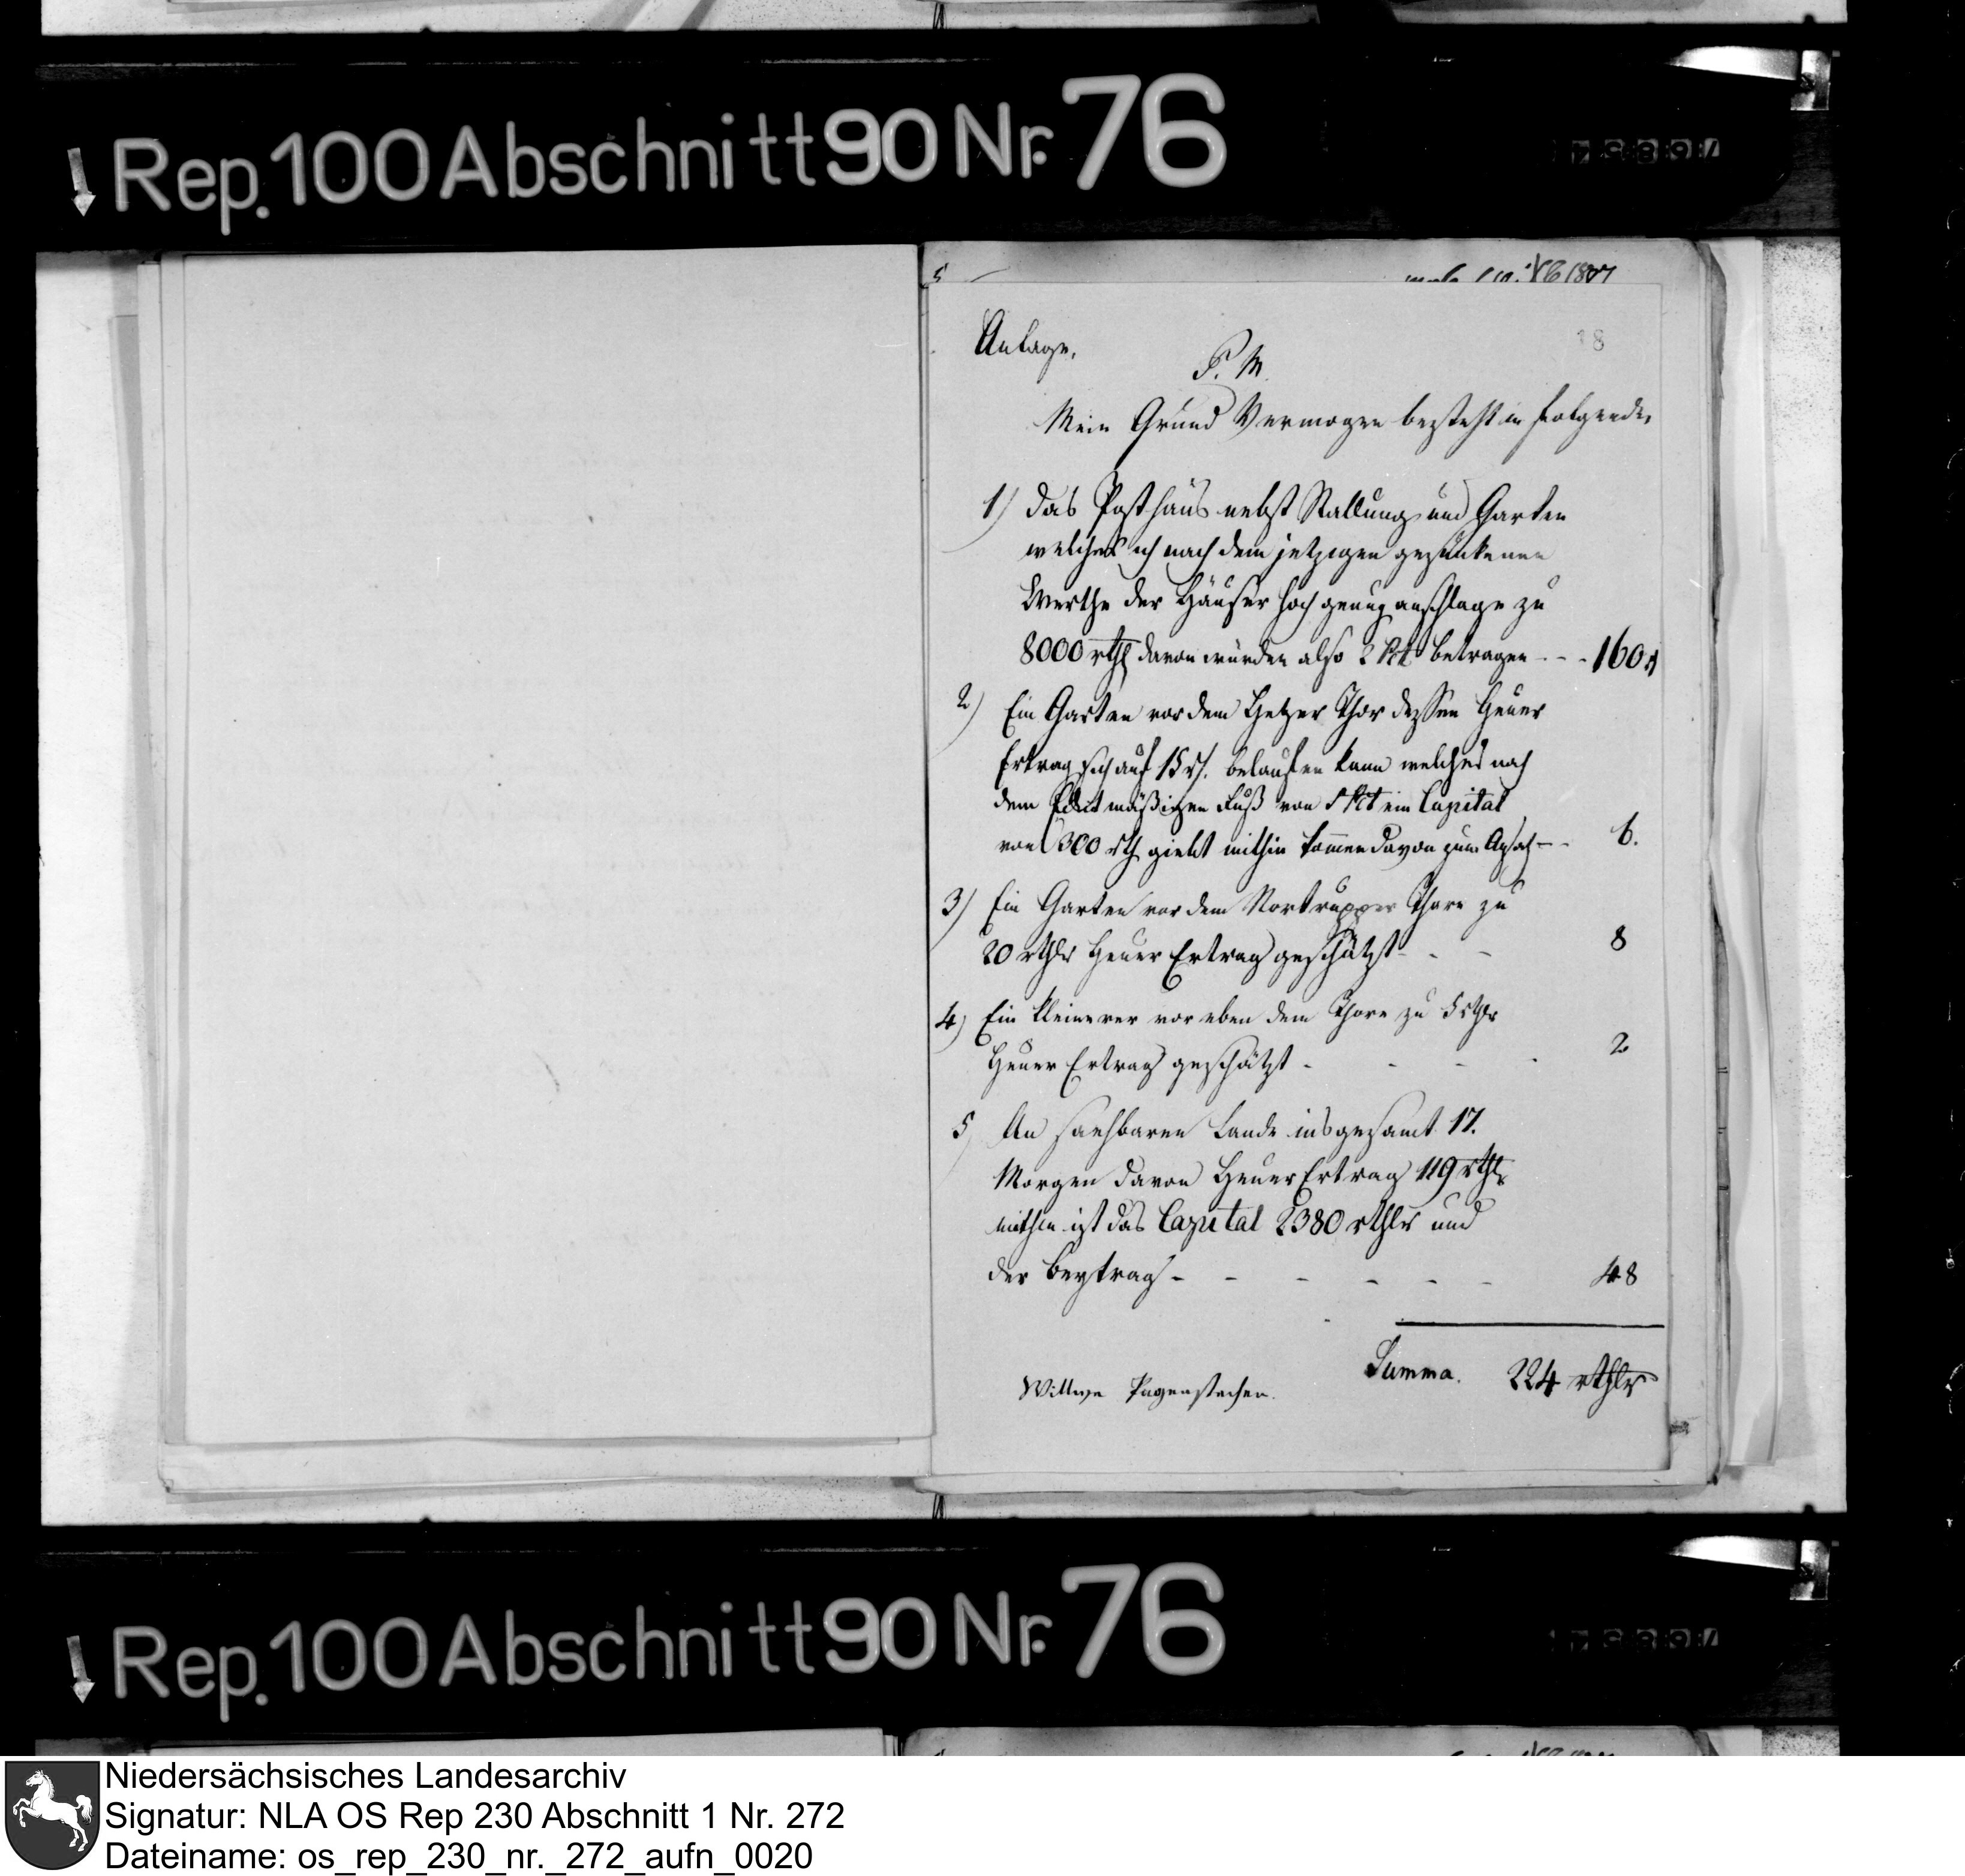 Rep. 100 Abschnitt 90 Nr. 76
1807
18
Anlage.
P. M.
Mein Grund Vermogen besteht in folgende,
1) das Posthaus nebst Stallung und Garten
welches ich nach dem jetzigen gesunkenen
Werthe der Häuser hoch genug anschlage zu
8000 rthl davon würden also 2 Pct betragen - - - 160
2) Ein Garten vor dem Thor dessen Heuer
Ertrag sich auf 15 r. belaufen kann welches nach
dem Edict mäßigen Fuß von 5 Pct ein Capital
von 300 rth giebt mithin kommen davon zum Ansatz - - 6.
3) Ein Garten vor dem Nortrupper Thore zu
20 rthlr Heuer Ertrag geschätzt - - - 8
4) Ein kleinerer vor eben dem Thore zu 5 rthlr
Heuer Ertrag geschätzt - - - - 2
5) An saehbaren Lande insgesamt 17.
Morgen davon Heuer Ertrag 119 rthlr
mithin ist das Capital 2380 rthlr und
der Beytrag - - - - - - 48
Summa. 224 rthlr
Wittwe Pagenstecher.
Rep. 100 Abschnitt 90 Nr. 76
Niedersächsisches Landesarchiv
Signatur: NLA OS Rep 230 Abschnitt 1 Nr. 272
Dateiname: os_rep_230_nr._272_aufn_0020